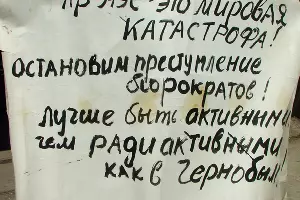 АЭС - ЭТО МИРОВАЯ
КАТАСТРОФА!
ОСТАНОВИМ ПРЕСТУПЛЕНИЕ
БЮРОКРАТОВ!
ЛУЧШЕ БЫТЬ АКТИВНЫМИ
ЧЕМ РАДИАКТИВНЫМИ
КАК В ЧЕРНОБЫЛ!